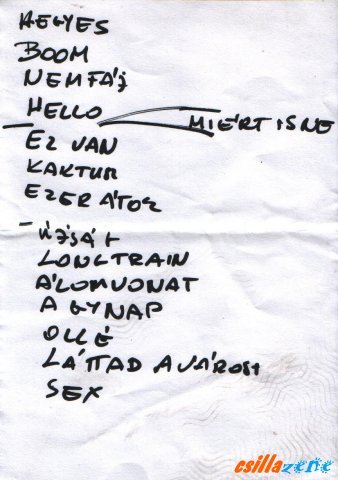 HEGYES
BOOM
NEMFÁJ
HELLO
MIÉRT ISNE
EZ VAN
KAKTUR
EZERÁTOR
ÚJSÁT
LONGTRAIN
ÁLOMVONAT
AGYNAP
OLLÉ
LÁTTAD A VÁROST
SEX
csillazene